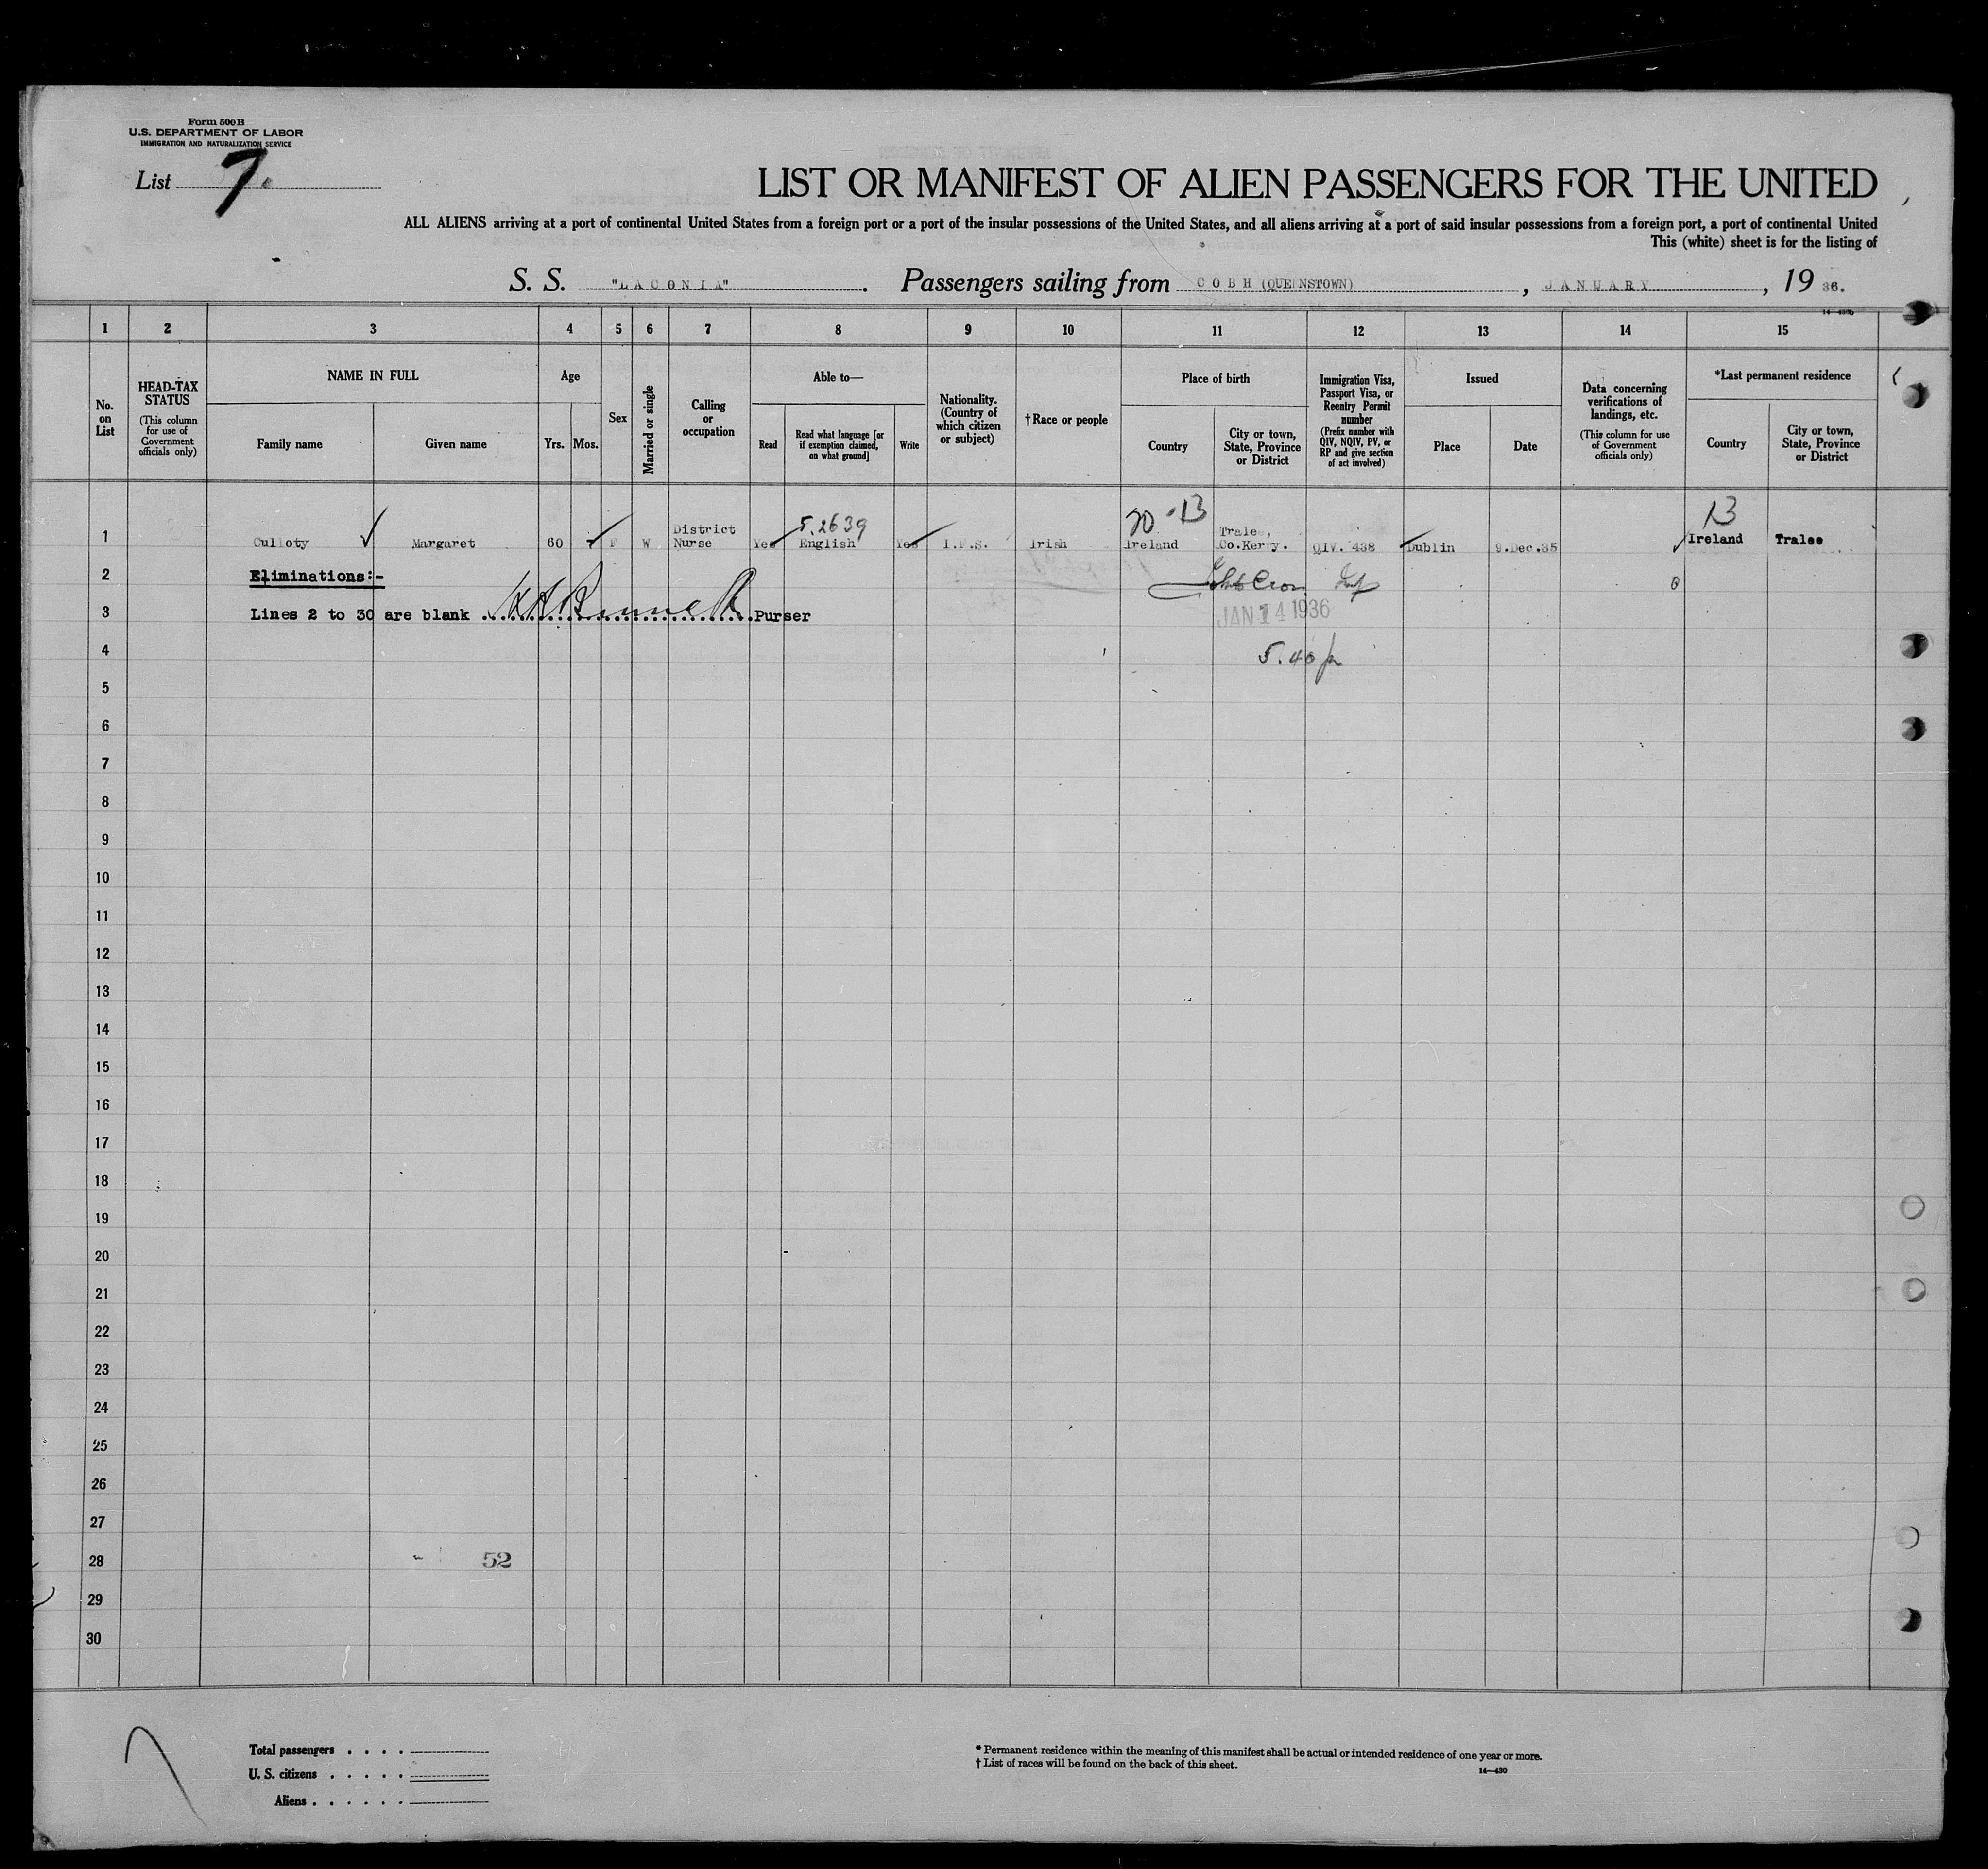 Form 500B
U.S. DEPARTMENT OF LABOR
IMMIGRATION AND NATURALIZATION SERVICE
List 7.
LIST OR MANIFEST OF ALIEN PASSENGERS FOR THE UNITED
ALL ALIENS arriving at a port of continental United States from a foreign port or a port of the insular possessions of the United States, and all aliens arriving at a port of said insular possessions from a foreign port, a port of continental United
This (white) sheet is for the listing of
S. S. "LACONIA". Passengers sailing from COBH (QUEENSTOWN), JANUARY, 19 36.
1 2 3 4 5 6 7 8 9 10 11 12 13 14 15
No. on List
HEAD-TAX STATUS
(This column for use of Government officials only)
NAME IN FULL
Family name
Given name
Age
Yrs.
Mos.
Sex
Married or single
Calling or occupation
Able to—
Read
Read what language [or if exemption claimed, on what ground]
Write
Nationality. (Country of which citizen or subject)
† Race or people
Place of birth
Country
City or town, State, Province or District
Immigration Visa, Passport Visa, or Reentry Permit number
(Prefix number with QIV, NQIV, PV, or RP and give section of act involved)
Issued
Place
Date
Data concerning verifications of landings, etc.
(This column for use of Government officials only)
*Last permanent residence
Country
City or town, State, Province or District
5.2639
1 Culloty Margaret 60 F W District Nurse Yes English Yes I.F.S. Irish Ireland Tralee, Co.Kerry. QIV. 438 Dublin 9.Dec.35 Ireland Tralee
2 Eliminations:-
3 Lines 2 to 30 are blank Purser
JAN 14 1936
4
5.40 p
5
6
7
8
9
10
11
12
13
14
15
16
17
18
19
20
21
22
23
24
25
26
27
28 52
29
30
Total passengers . . . .
U. S. citizens . . . . .
Aliens . . . . . .
* Permanent residence within the meaning of this manifest shall be actual or intended residence of one year or more.
† List of races will be found on the back of this sheet.
14—430